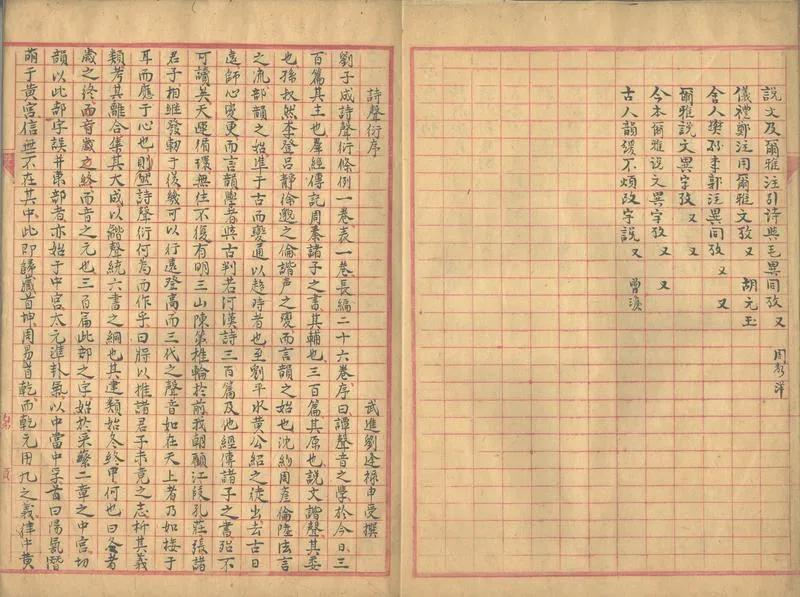 說文及爾雅注引詩與毛異同攷 又
儀禮鄭注用爾雅文攷 又 胡元玉
舍人樊孫李郭注異同攷 又 又 周彥洋
爾雅說文異字攷 又 又
今本爾雅说文異字攷 又 又
古人韻缓不煩改字說 又 曾
詩聲衍序
武進劉逢禄申受撰
劉子成詩聲衍條例一卷表一卷長編二十六卷序曰譚聲音之學於今日三
百篇其主也羣經傳記周秦諸子之書其輔也三百篇其原也說文諧聲其委
也孫叔然李登呂静徐邈之倫諧声之變而言韻之始也沈約周彦倫陸法言
之流部韻之始準于古而變通以趋時者也至劉平水黄公紹之徒出去古日
遠師心變更而言韻學者與古判若河漢詩三百篇及他經傳諸子之書殆不
可讀矣天運循環無往不復有明三山陳第椎輪於前我朝顧江段孔莊張諸
君子相继發軔于後幾可以行遠登高而三代之聲音如在天上者乃如接于
耳而應于心也則然詩聲衍何為而作乎曰將以推諸君子未竟之志析其義
類考其離合集其大成以諧聲統六書之綱也其建類始冬終中何也曰冬者
歲之終而音歲之終而音之元也三百篇此部之字始於采蘩二章之中宫切
韻以此部字誤并東部者亦始于中宫太元準卦氣以中當中孚首曰陽氣潛
萌于黄宫信無不在其中此即歸藏首坤周易首乾而乾元用九之義律中黄